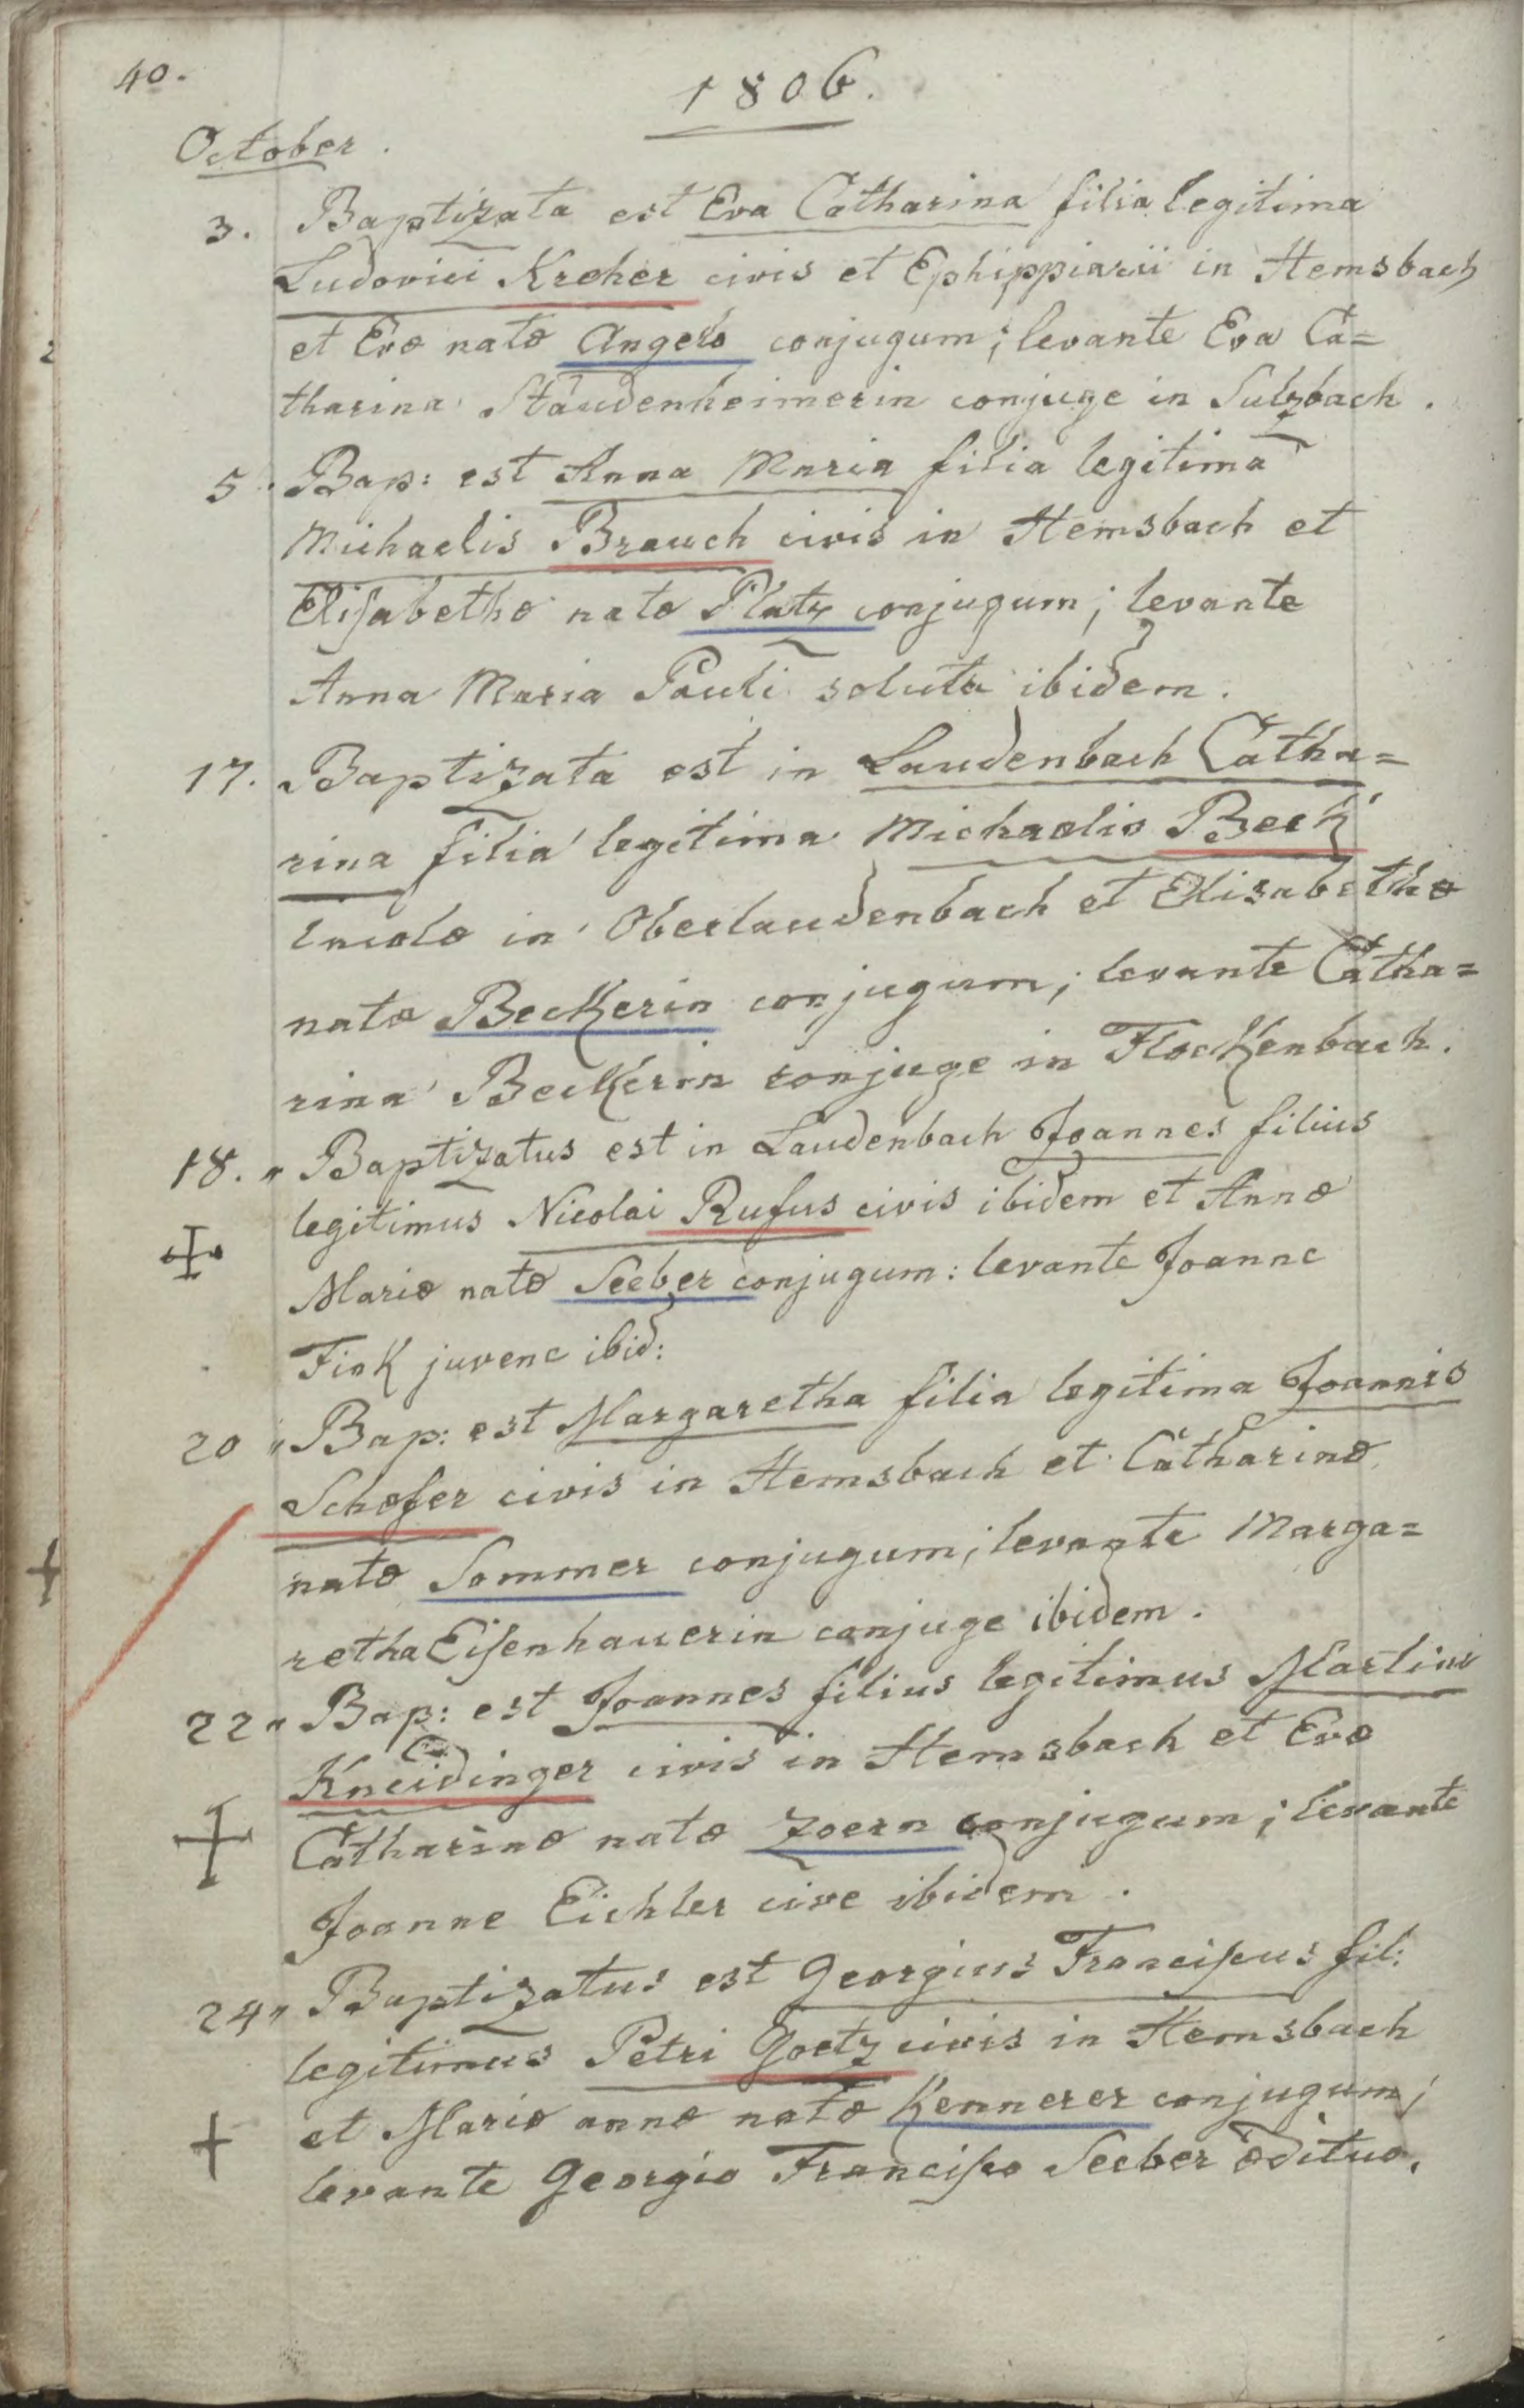 40.
1806.
October.
3. Baptizata est Eva Catharina filia legitima
Ludovici Kreher civis et Ephippiarii in Hemsbach
et Evæ natæ Angelo conjugum; levante Eva Ca=
tharina Staudenheimerin conjuge in Sulzbach.
5. Bap: est Anna Maria filia legitima
Michaelis Brauch civis in Hemsbach et
Elisabethæ natæ Platz conjugum; levante
Anna Maria Pauli soluta ibidem.
17. Baptizata est in Laudenbach Catha=
rina filia legitima Michaelis Beck
incolæ in Oberlaudenbach et Elisabethæ
natæ Beckerin conjugum; levante Catha=
rina Beckerin conjuge in Flockenbach.
18. " Baptizatus est in Laudenbach Joannes filius
legitimus Nicolai Rufus civis ibidem et Annæ
Mariæ natæ Seeber conjugum: levante Joanne
Fink juvene ibid:
20 " Bap: est Margaretha filia legitima Joannis
Schæfer civis in Hemsbach et Catharinæ
natæ Sommer conjugum; levante Marga=
retha Eisenhauerin conjuge ibidem.
22 " Bap: est Joannes filius legitimus Martini
Kneidinger civis in Hemsbach et Evæ
Catharinæ natæ Zoern conjugum; levante
Joanne Eichler cive ibidem.
24 " Baptizatus est Georgius Franciscus fil:
legitimus Petri Goetz civis in Hemsbach
et Mariæ annæ natæ Kennerer conjugum;
levante Georgio Francisco Seeber ædituo.